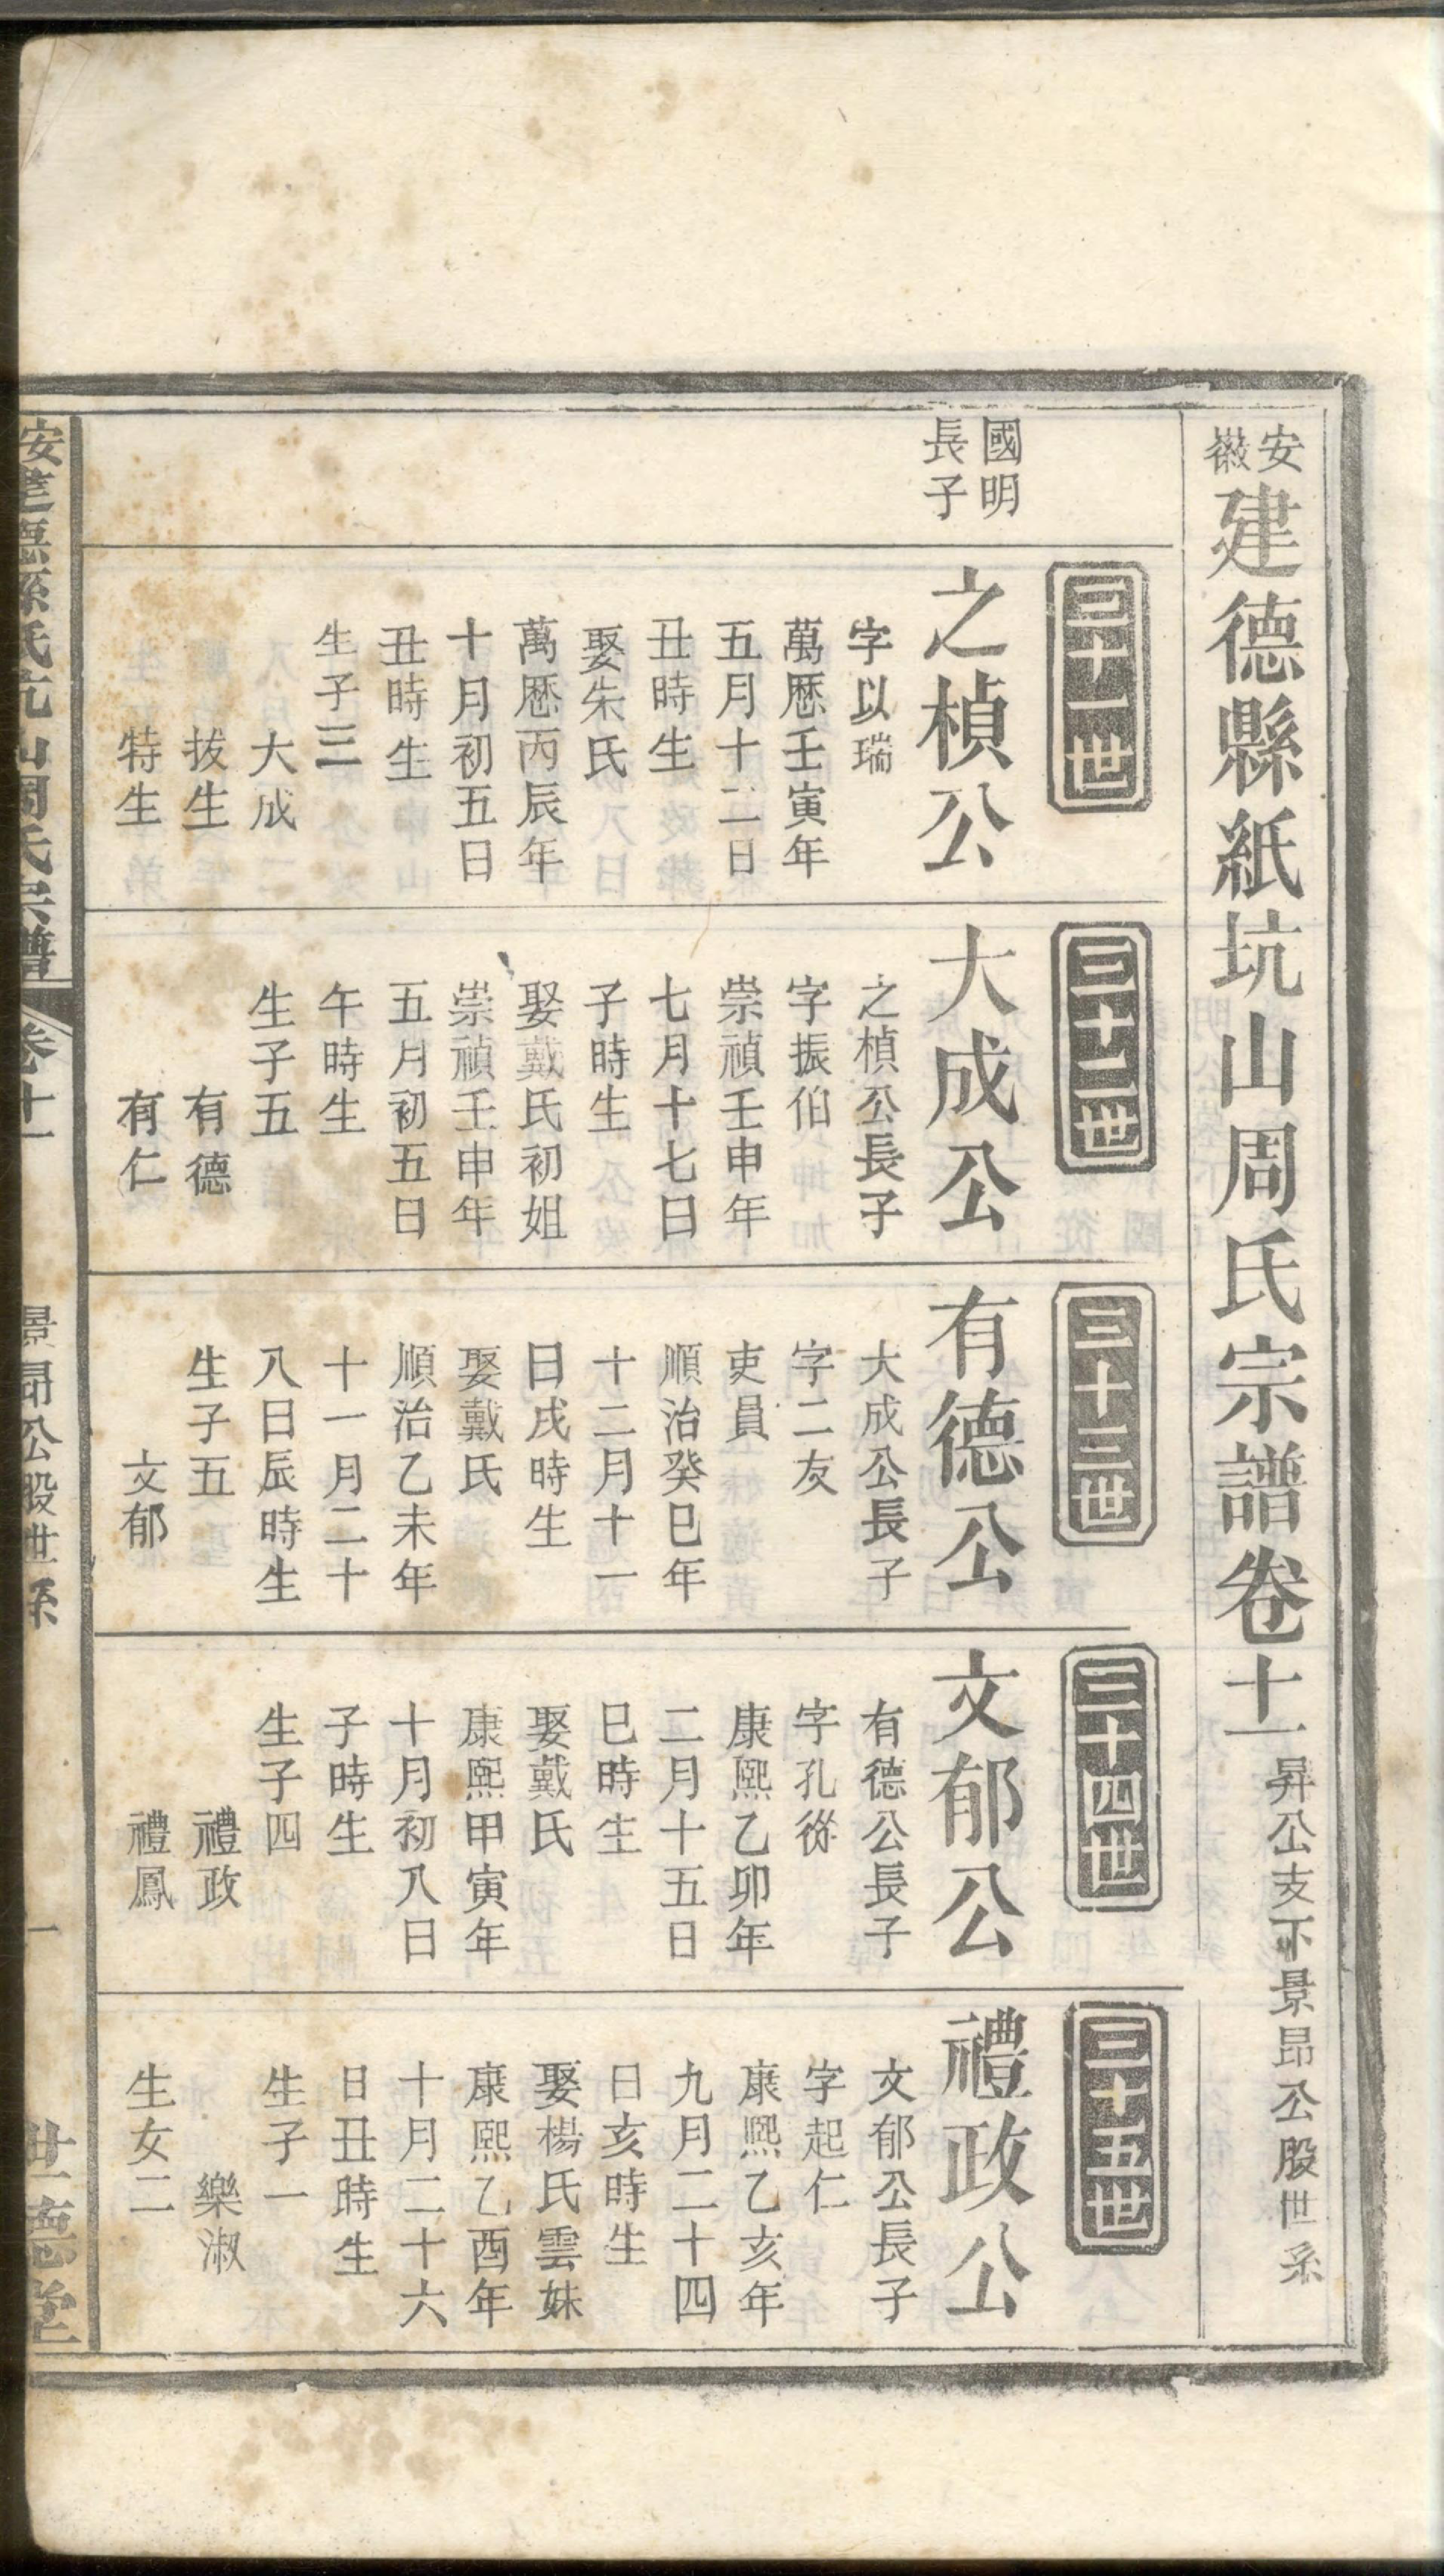 安徽建德縣紙坑山周氏宗譜卷十一 昇公支下景昂公股世系
國明
長子
三十一世
之楨公
字以瑞
萬厯壬寅年
五月十二日
丑時生
娶朱氏
萬厯丙辰年
十月初五日
丑時生
生子三
大成
拔生
特生
三十二世
大成公
之楨公長子
字振伯
崇禎壬申年
七月十七日
子時生
娶戴氏初姐
崇禎壬申年
五月初五日
午時生
生子五
有德
有仁
三十三世
有德公
大成公長子
字二友
吏員
順治癸巳年
十二月十一
日戌時生
娶戴氏
順治乙未年
十一月二十
八日辰時生
生子五
文郁
三十四世
文郁公
有德公長子
字孔從
康熙乙卯年
二月十五日
巳時生
娶戴氏
康熙甲寅年
十月初八日
子時生
生子四
禮政
禮鳳
三十五世
禮政公
文郁公長子
字起仁
康熙乙亥年
九月二十四
日亥時生
娶楊氏雲妹
康熙乙酉年
十月二十六
日丑時生
生子一
樂淑
生女二
卷十一
景昂公股世系
一
世德堂